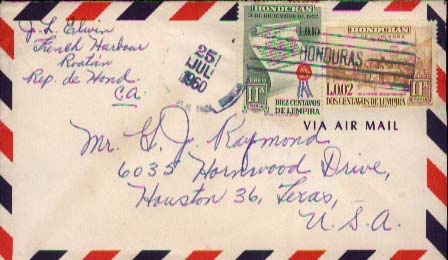 J. L. Elwin
French Harbour
Roatan
Rep. de Hond.
C.A.
25
JUL
1960
HONDURAS
21 DICIEMBRE DE 1957
L 0.10
DIEZ CENTAVOS
DE LEMPIRA
HONDURAS
HONDURAS
L 0.02
DOS CENTAVOS DE LEMPIRA
VIA AIR MAIL
Mr. G. J. Raymond
6035 Hornwood Drive,
Houston 36, Texas,
U.S.A.